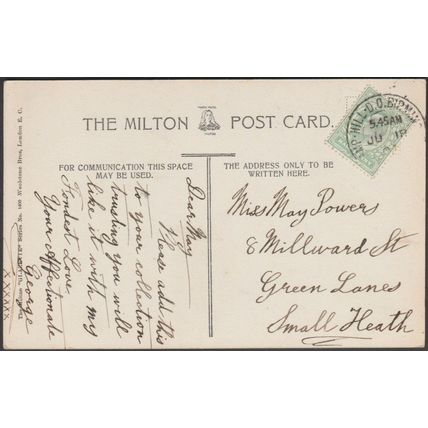 THE MILTON POST CARD.
FOR COMMUNICATION THIS SPACE
MAY BE USED.
THE ADDRESS ONLY TO BE
WRITTEN HERE.
Dear May
Please add this
to your collection
trusting you will
like it with my
Fondest Love
Your Affectionate
George
XXXXXX
Miss May Powers
8 Millward St
Green Lanes
Small Heath
Woolstone Bros, London E. C.
HILL·D.O. BIRM
5.45AM
JU 18